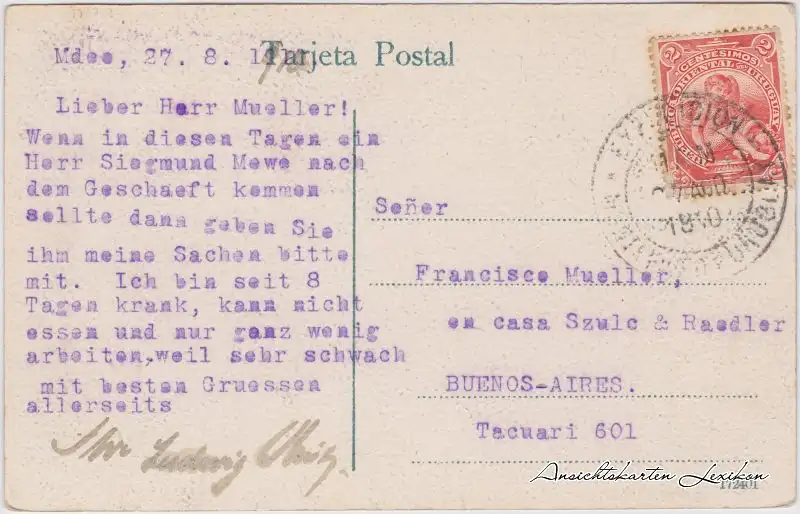 Tarjeta Postal
Mdeo, 27. 8. 1910
Lieber Herr Mueller!
Wenn in diesen Tagen ein
Herr Siegmund Mewe nach
dem Geschaeft kommen
sollte dann geben Sie
ihm meine Sachen bitte
mit. Ich bin seit 8
Tagen krank, kann nicht
essen und nur ganz wenig
arbeiten, weil sehr schwach
mit besten Gruessen
allerseits
Ihr Ludwig
2 CENTESIMOS 2
REPUBLICA ORIENTAL DEL URUGUAY
AGO.
1910
Señor
Francisco Mueller,
en casa Szulc & Raedler
BUENOS-AIRES.
Tacuari 601
Ansichtskarten Lexikon
172401